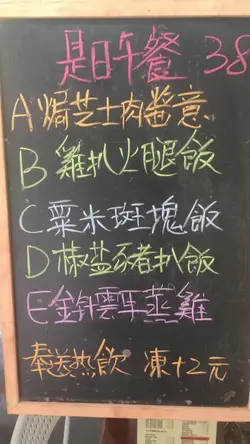 是日午餐 38
A 焗芝士肉醬意
B 雞扒火腿飯
C 粟米斑塊飯
D 椒盐豬扒飯
E 金針雲耳蒸雞
奉送热飲 凍+2元